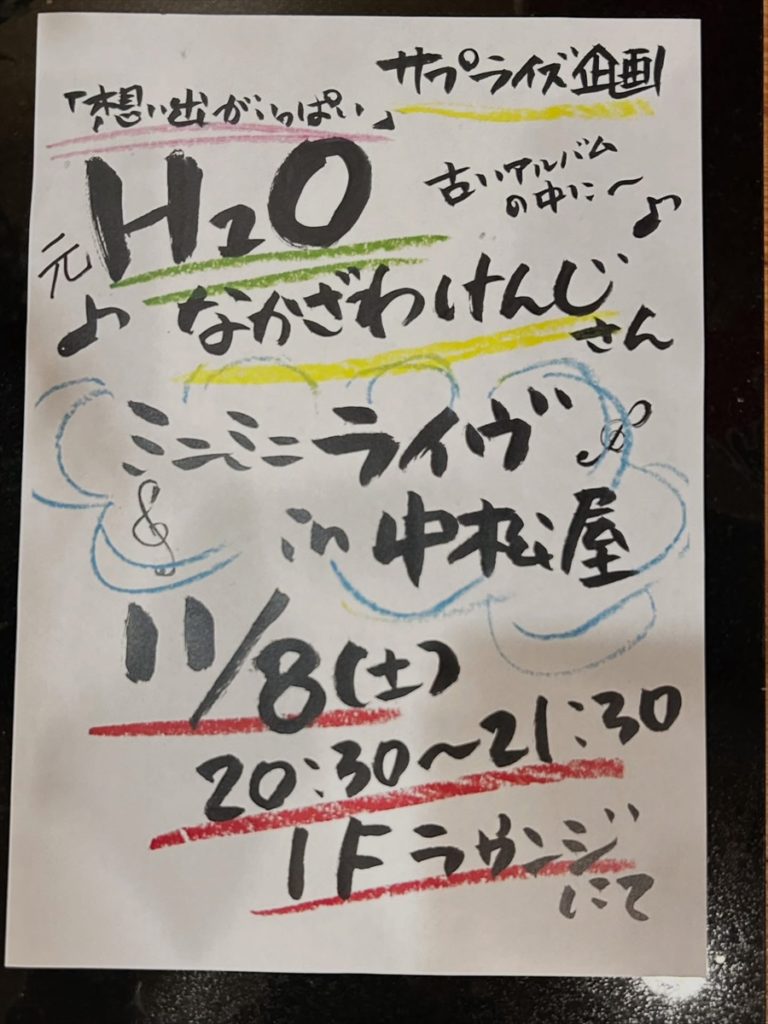 サプライズ企画
「想い出がいっぱい」
元H2O
古いアルバム
の中に〜♪
♪ なかざわけんじ
さん
ミニミニライヴ
in 中松屋
11/8(土)
20:30〜21:30
1Fラウンジ
にて